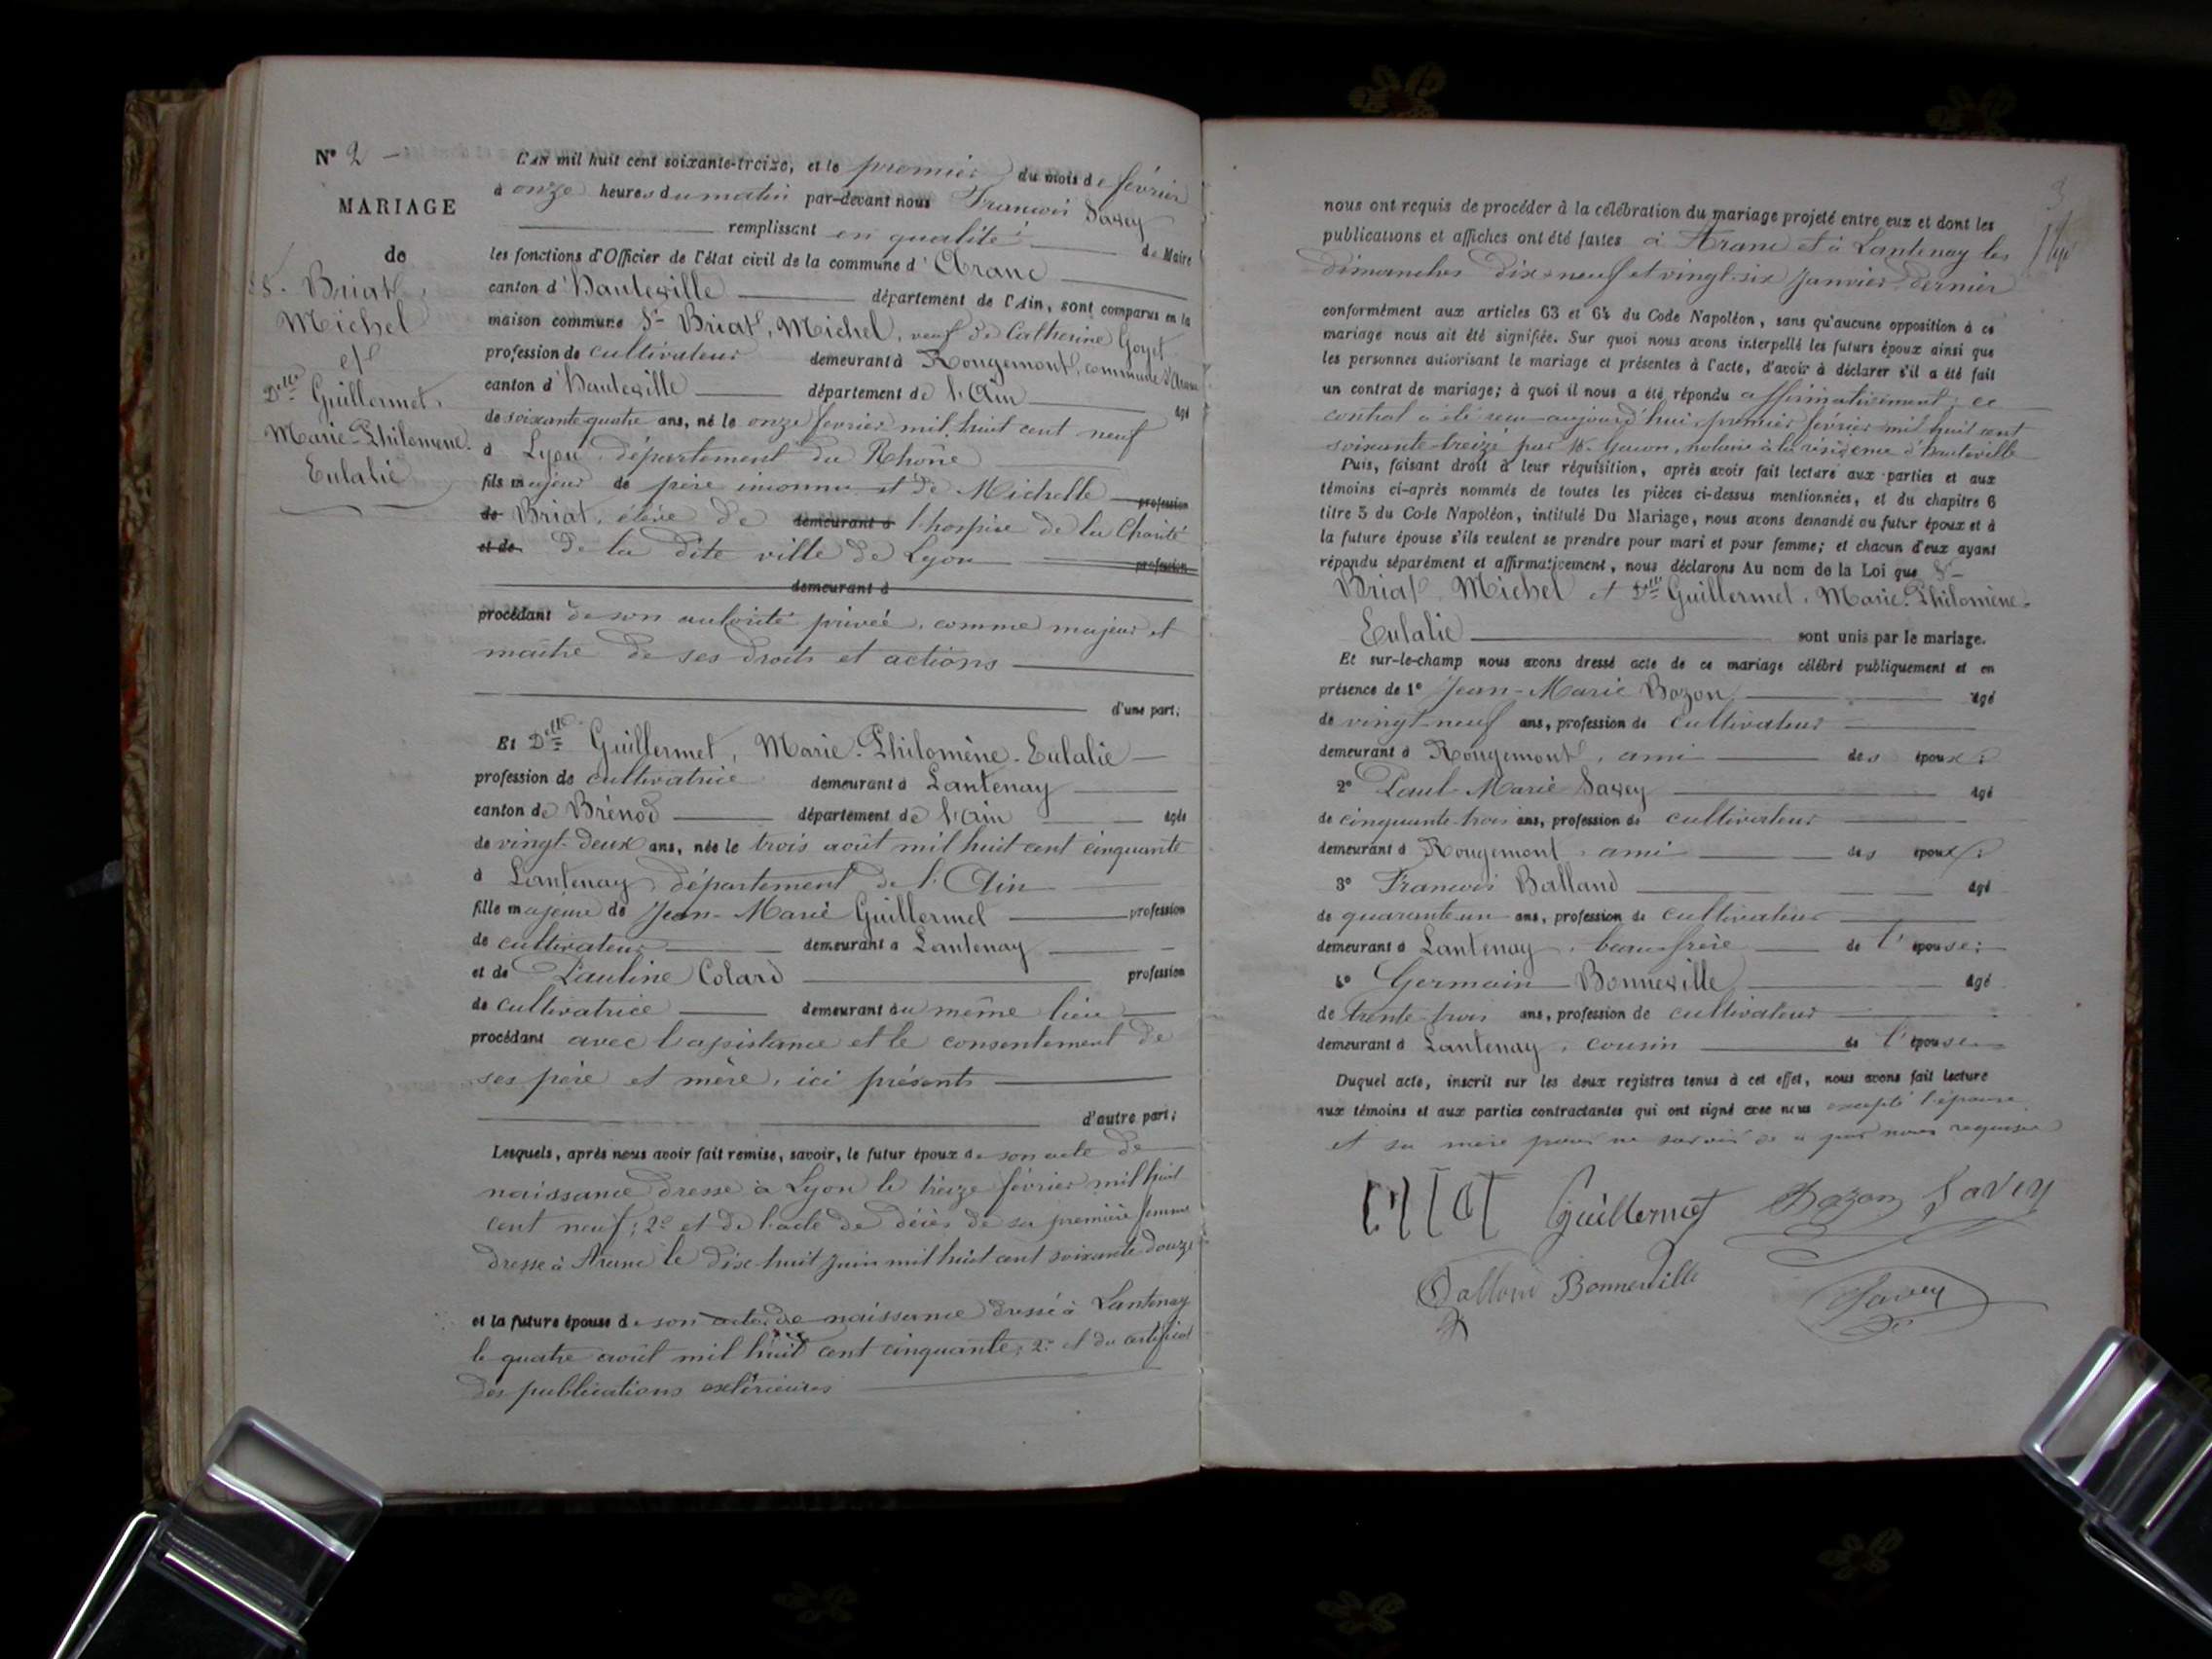 N° 2 -
MARIAGE
de
S. Briat
Michel
et
Delle Guillermet
Marie-Philomène-
Eulalie
L'AN mil huit cent soixante-treize, et le premier du mois de février
à onze heures du matin par-devant nous François Savey
remplissant en qualité de Maire
les fonctions d'Officier de l'état civil de la commune d'Aranc
canton d'Hauteville département de l'Ain, sont comparus en la
maison commune Sr Briat, Michel, veuf de Catherine Goyet
profession de cultivateur demeurant à Rougemont, commune d'Aranc
canton d'Hauteville département de l'Ain âgé
de soixante-quatre ans, né le onze février mil huit cent neuf
à Lyon, département du Rhône
fils majeur de père inconnu et de Michelle profession
de Briat, élève de demeurant à l'hospice de la Charité
et de de la dite ville de Lyon profession
demeurant à
procédant de son autorité privée, comme majeur et
maître de ses droits et actions
d'une part;
Et Delle Guillermet, Marie-Philomène-Eulalie
profession de cultivatrice demeurant à Lantenay
canton de Brénod département de l'Ain âgée
de vingt-deux ans, née le trois août mil huit cent cinquante
à Lantenay, département de l'Ain
fille majeure de Jean-Marie Guillermet profession
de cultivateur demeurant à Lantenay
et de Pauline Colard profession
de cultivatrice demeurant au même lieu
procédant avec l'assistance et le consentement de
ses père et mère, ici présents
d'autre part;
Lesquels, après nous avoir fait remise, savoir, le futur époux de son acte de
naissance dressé à Lyon le treize février mil huit
cent neuf; 2° et de l'acte de décès de sa première femme
dressé à Aranc le dix-huit juin mil huit cent soixante-douze
et la future épouse de son acte de naissance dressé à Lantenay
le quatre août mil huit cent cinquante; 2° et du certificat
des publications extérieures
3
nous ont requis de procéder à la célébration du mariage projeté entre eux et dont les
publications et affiches ont été faites à Aranc et à Lantenay les
dimanches dix-neuf et vingt-six janvier dernier
conformément aux articles 63 et 64 du Code Napoléon, sans qu'aucune opposition à ce
mariage nous ait été signifiée. Sur quoi nous avons interpellé les futurs époux ainsi que
les personnes autorisant le mariage et présentes à l'acte, d'avoir à déclarer s'il a été fait
un contrat de mariage; à quoi il nous a été répondu affirmativement; ce
contrat a été reçu aujourd'hui premier février mil huit cent
soixante-treize par notaire à la résidence d'Hauteville
Puis, faisant droit à leur réquisition, après avoir fait lecture aux parties et aux
témoins ci-après nommés de toutes les pièces ci-dessus mentionnées, et du chapitre 6
titre 5 du Code Napoléon, intitulé Du Mariage, nous avons demandé au futur époux et à
la future épouse s'ils veulent se prendre pour mari et pour femme; et chacun d'eux ayant
répondu séparément et affirmativement, nous déclarons Au nom de la Loi que Sr
Briat, Michel et Delle Guillermet, Marie-Philomène-
Eulalie sont unis par le mariage.
Et sur-le-champ nous avons dressé acte de ce mariage célébré publiquement et en
présence de 1° Jean-Marie Bozon âgé
de vingt-neuf ans, profession de cultivateur
demeurant à Rougemont, ami des époux;
2° Paul-Marie Savey âgé
de cinquante-trois ans, profession de cultivateur
demeurant à Rougemont, ami des époux;
3° François Balland âgé
de quarante-un ans, profession de cultivateur
demeurant à Lantenay, beau-frère de l'épouse;
4° Germain Bonneville âgé
de trente-trois ans, profession de cultivateur
demeurant à Lantenay, cousin de l'épouse.
Duquel acte, inscrit sur les deux registres tenus à cet effet, nous avons fait lecture
aux témoins et aux parties contractantes qui ont signé avec nous excepté l'épouse
et sa mère pour ne savoir de ce par nous requises
Guillermet Bozon Savey
Balland Bonneville Savey